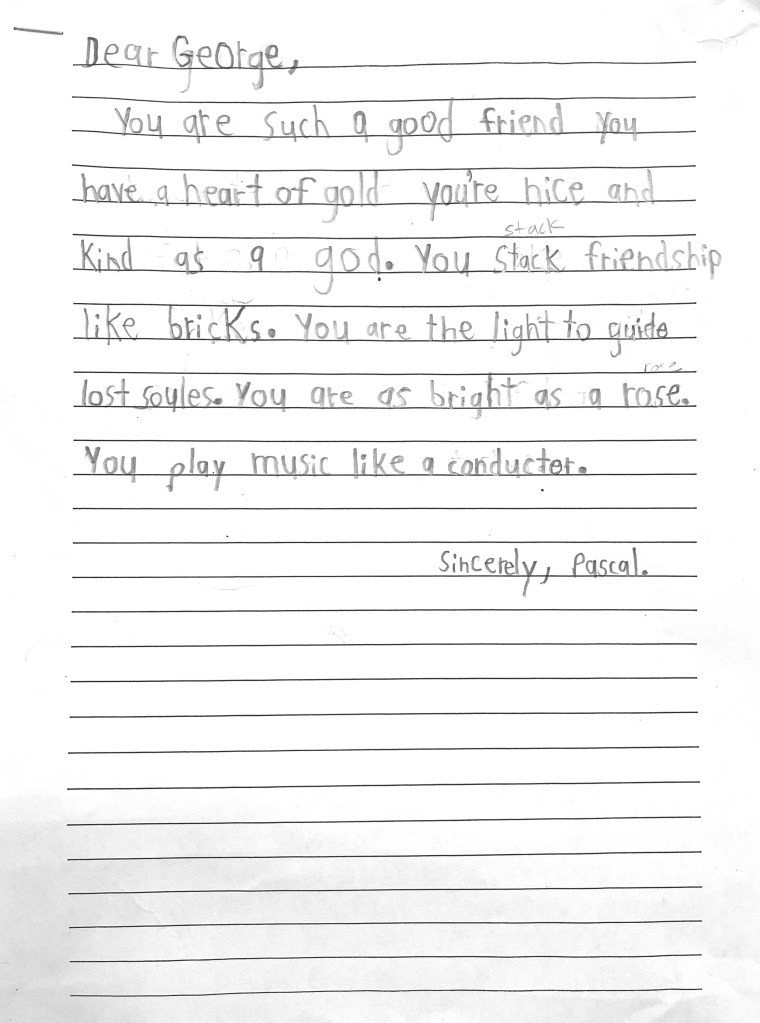 Dear George,
You are such a good friend you
have a heart of gold you're nice and
stack
kind as a god. You stack friendship
like bricks. You are the light to guide
rose
lost soules. You are as bright as a rose.
You play music like a conductor.
Sincerely, Pascal.